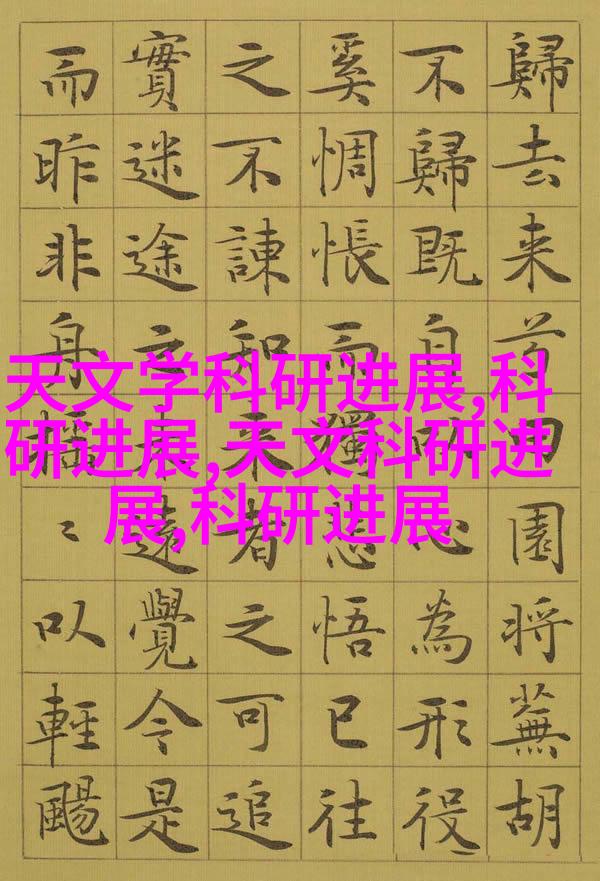 歸去来田園将蕪胡
不歸既自以心為形役
奚惆悵而獨悲悟已往
之不諫知来者之可追
實迷途未遠覺今是
而昨非舟摇〻以輕颺
天文学科研进展,科
研进展,天文科研进
展,科研进展